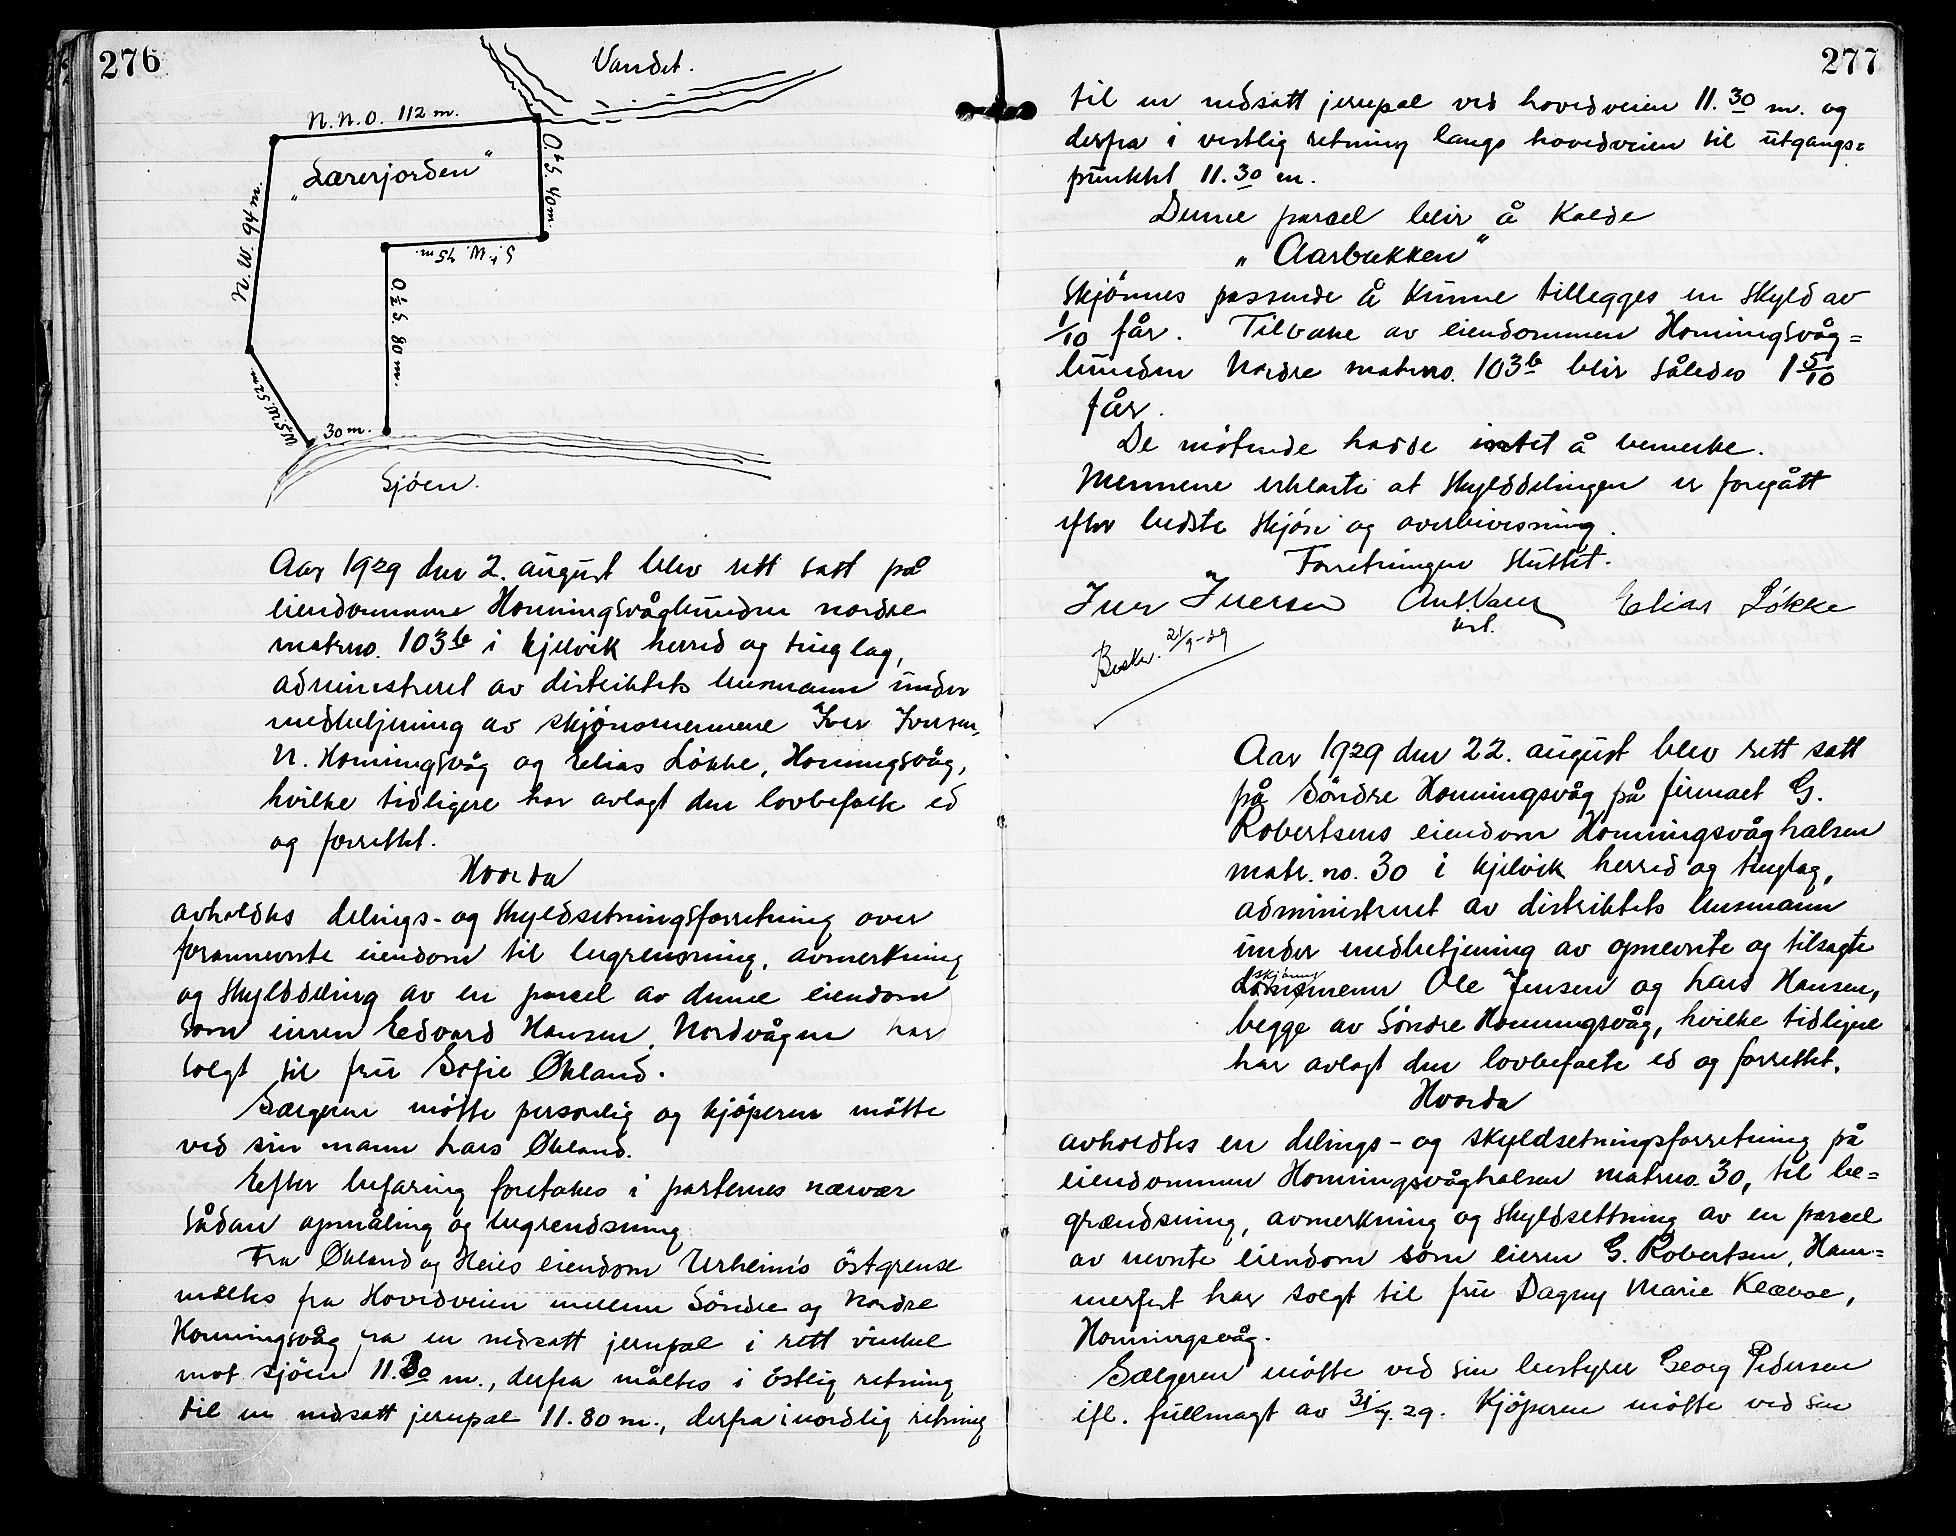 276
Vandet.
N.N.O. 112 m.
O.t.S. 40 m.
"Lærerjorden"
N.W. 94 m.
S.t.W. 45 m.
O.½S. 80 m.
30 m.
Sjøen.
Aar 1929 den 2. august blev rett satt på
eiendommene Honningsvågbunden nordre
matrno. 103b i Kjelvik herred og tinglag,
administreret av distriktets lensmann under
medbetjening av skjönsmennene Iver Iversen,
N. Honningsvåg og Elias Løkke, Honningsvåg,
hvilke tidligere har avlagt den lovbefalte ed
og forrettet.
Hvorda
avholdtes delings- og skyldsetningsforretning over
forannevnte eiendom til begrensning, avmerkning
og skylddeling av en parcel av denne eiendom
som eieren Edvard Hansen, Nordvågen har
solgt til fru Sofie Økland.
Sælgeren mötte personlig og kjöperen mötte
ved sin mann Lars Økland.
Efter befaring foretokes i parternes nærvær
sådan opmåling og begrendsning
Fra Økland og Heies eiendom Urheims östgrense
måltes fra Hovedveien mellem Söndre og Nordre
Honningsvåg fra en nedsatt jernpæl i rett vinkel
mot sjöen 11.30 m., derfra måltes i östlig retning
til en nedsatt jernpæl 11.80 m., derfra i nordlig retning
277
til en nedsatt jernpæl ved hovedveien 11.30 m. og
derfra i vestlig retning langs hovedveien til utgangs=
punktet 11.30 m.
Denne parcel blir å kalde
"Aarbakken"
Skjönnes passende å kunne tillegges en skyld av
1/10 får. Tilbake av eiendommen Honningsvåg=
bunden Nordre matrno. 103b blir således 1 5/10
får.
De mötende hadde intet å bemerke.
Mennene erklærte at skylddelingen er foregått
efter bedste skjön og overbevisning.
Forretningen sluttet.
Iver Iversen Elias Løkke
Beskr. 21/9-29
Aar 1929 den 22. august blev rett satt
på Söndre Honningsvåg på firmaet G.
Robertsens eiendom Honningsvåghalsen
matr. no. 30 i Kjelvik herred og tinglag,
administreret av distriktets lensmann
under medbetjening av opnevnte og tilsagte
skjönnsmenn Ole Jensen og Lars Hansen,
begge av Söndre Honningsvåg, hvilke tidligere
har avlagt den lovbefalte ed og forrettet.
Hvorda
avholdtes en delings- og skyldsetningsforretning på
eiendommen Honningsvåghalsen matrno. 30, til be=
grændsning, avmerkning og skyldsettning av en parcel
av nevnte eiendom som eieren G. Robertsen, Ham=
merfest har solgt til fru Dagny Marie Klæboe,
Honningsvåg.
Sælgeren mötte ved sin bestyrer Georg Pedersen
ifl. fullmagt av 31/7.29. Kjöperen mötte ved sin